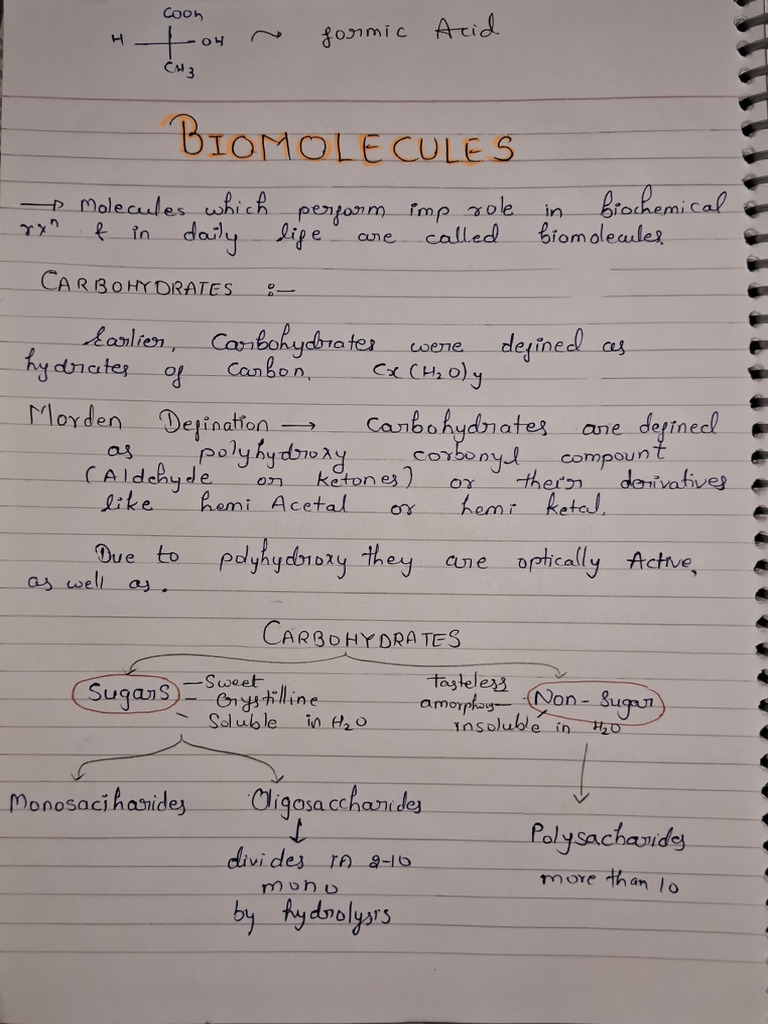 COOH
H OH ~ formic Acid
CH3
BIOMOLECULES
→ Molecules which perform imp role in Biochemical
rxⁿ & in daily life are called biomolecules.
CARBOHYDRATES :-
Earlier, Carbohydrates were defined as
hydrates of Carbon. Cx(H2O)y
Morden Defination → Carbohydrates are defined
as polyhydroxy corbonyl compount
(Aldehyde or ketones) or their derivatives
like hemi Acetal or hemi ketal.
Due to polyhydroxy they are optically Active,
as well as.
CARBOHYDRATES
Sugars - Sweet
- Crystilline
- Soluble in H2O
tasteless
amorphous - Non-Sugar
insoluble in H2O
Monosaciharides Oligosaccharides
↓
divides in 2-10
mono
by hydrolysis
Polysacharides
more than 10